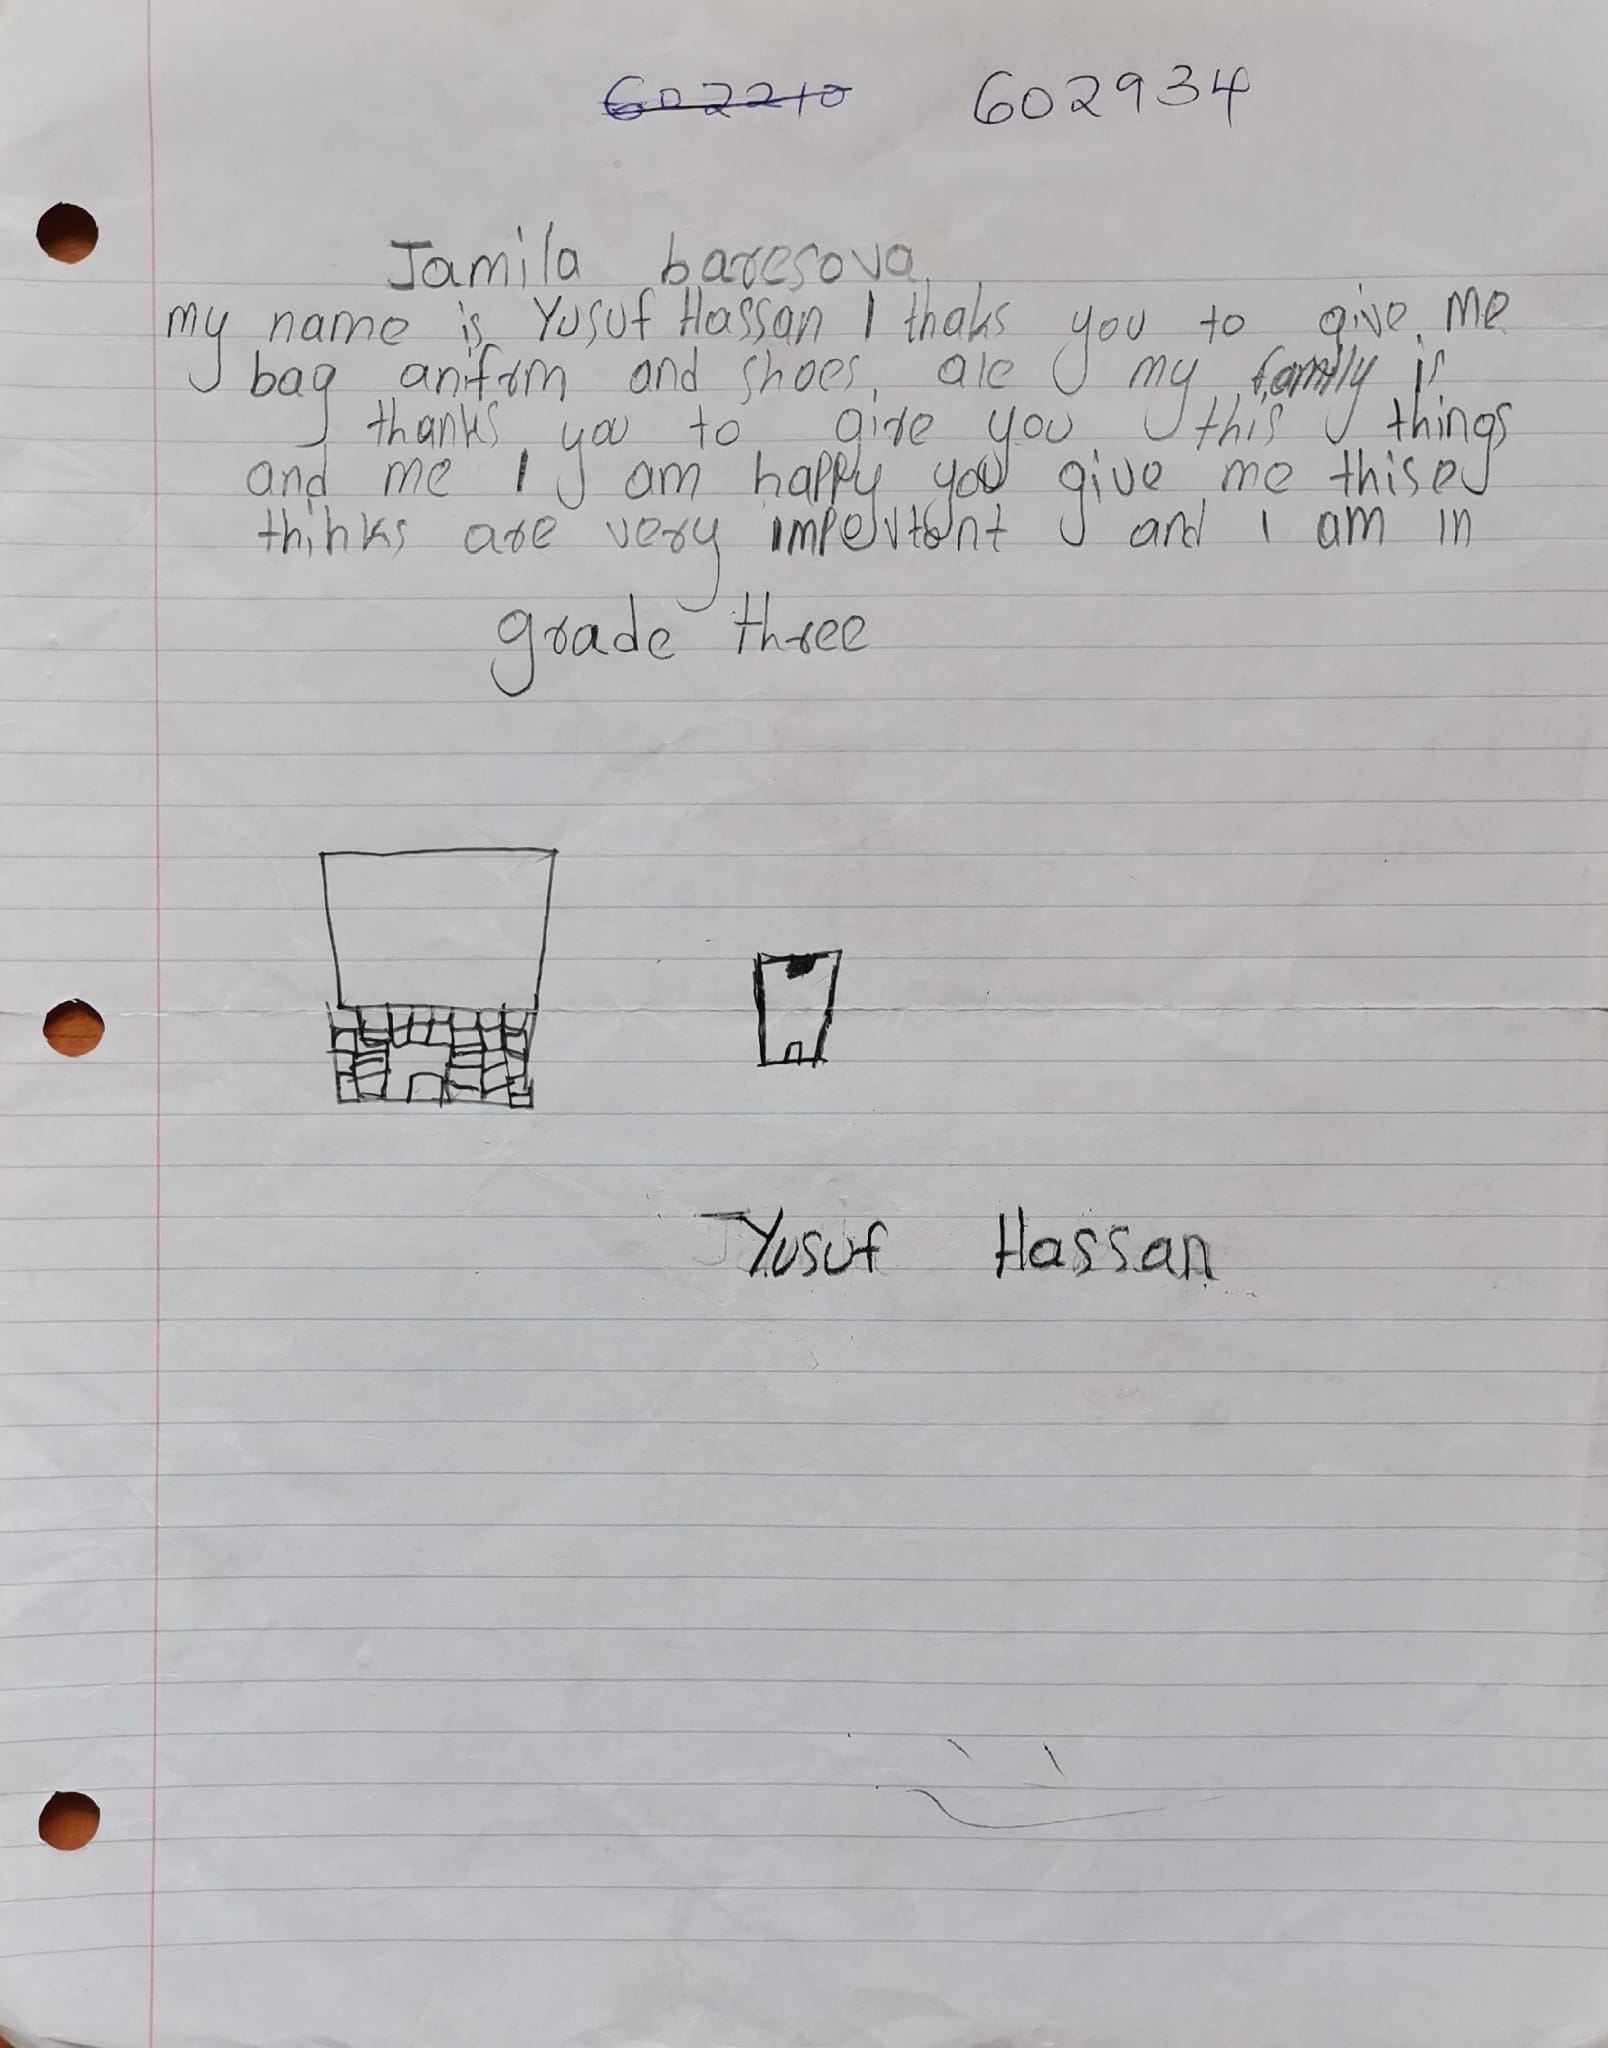 602210 602934
Jamila baresova
my name is Yusuf Hassan I thaks you to give me
bag anifrm and shoes, ale my family is
thanks you to give you this things
and me I am happy you give me thise
thinks are very impevtant and I am in
grade three
Yusuf Hassan